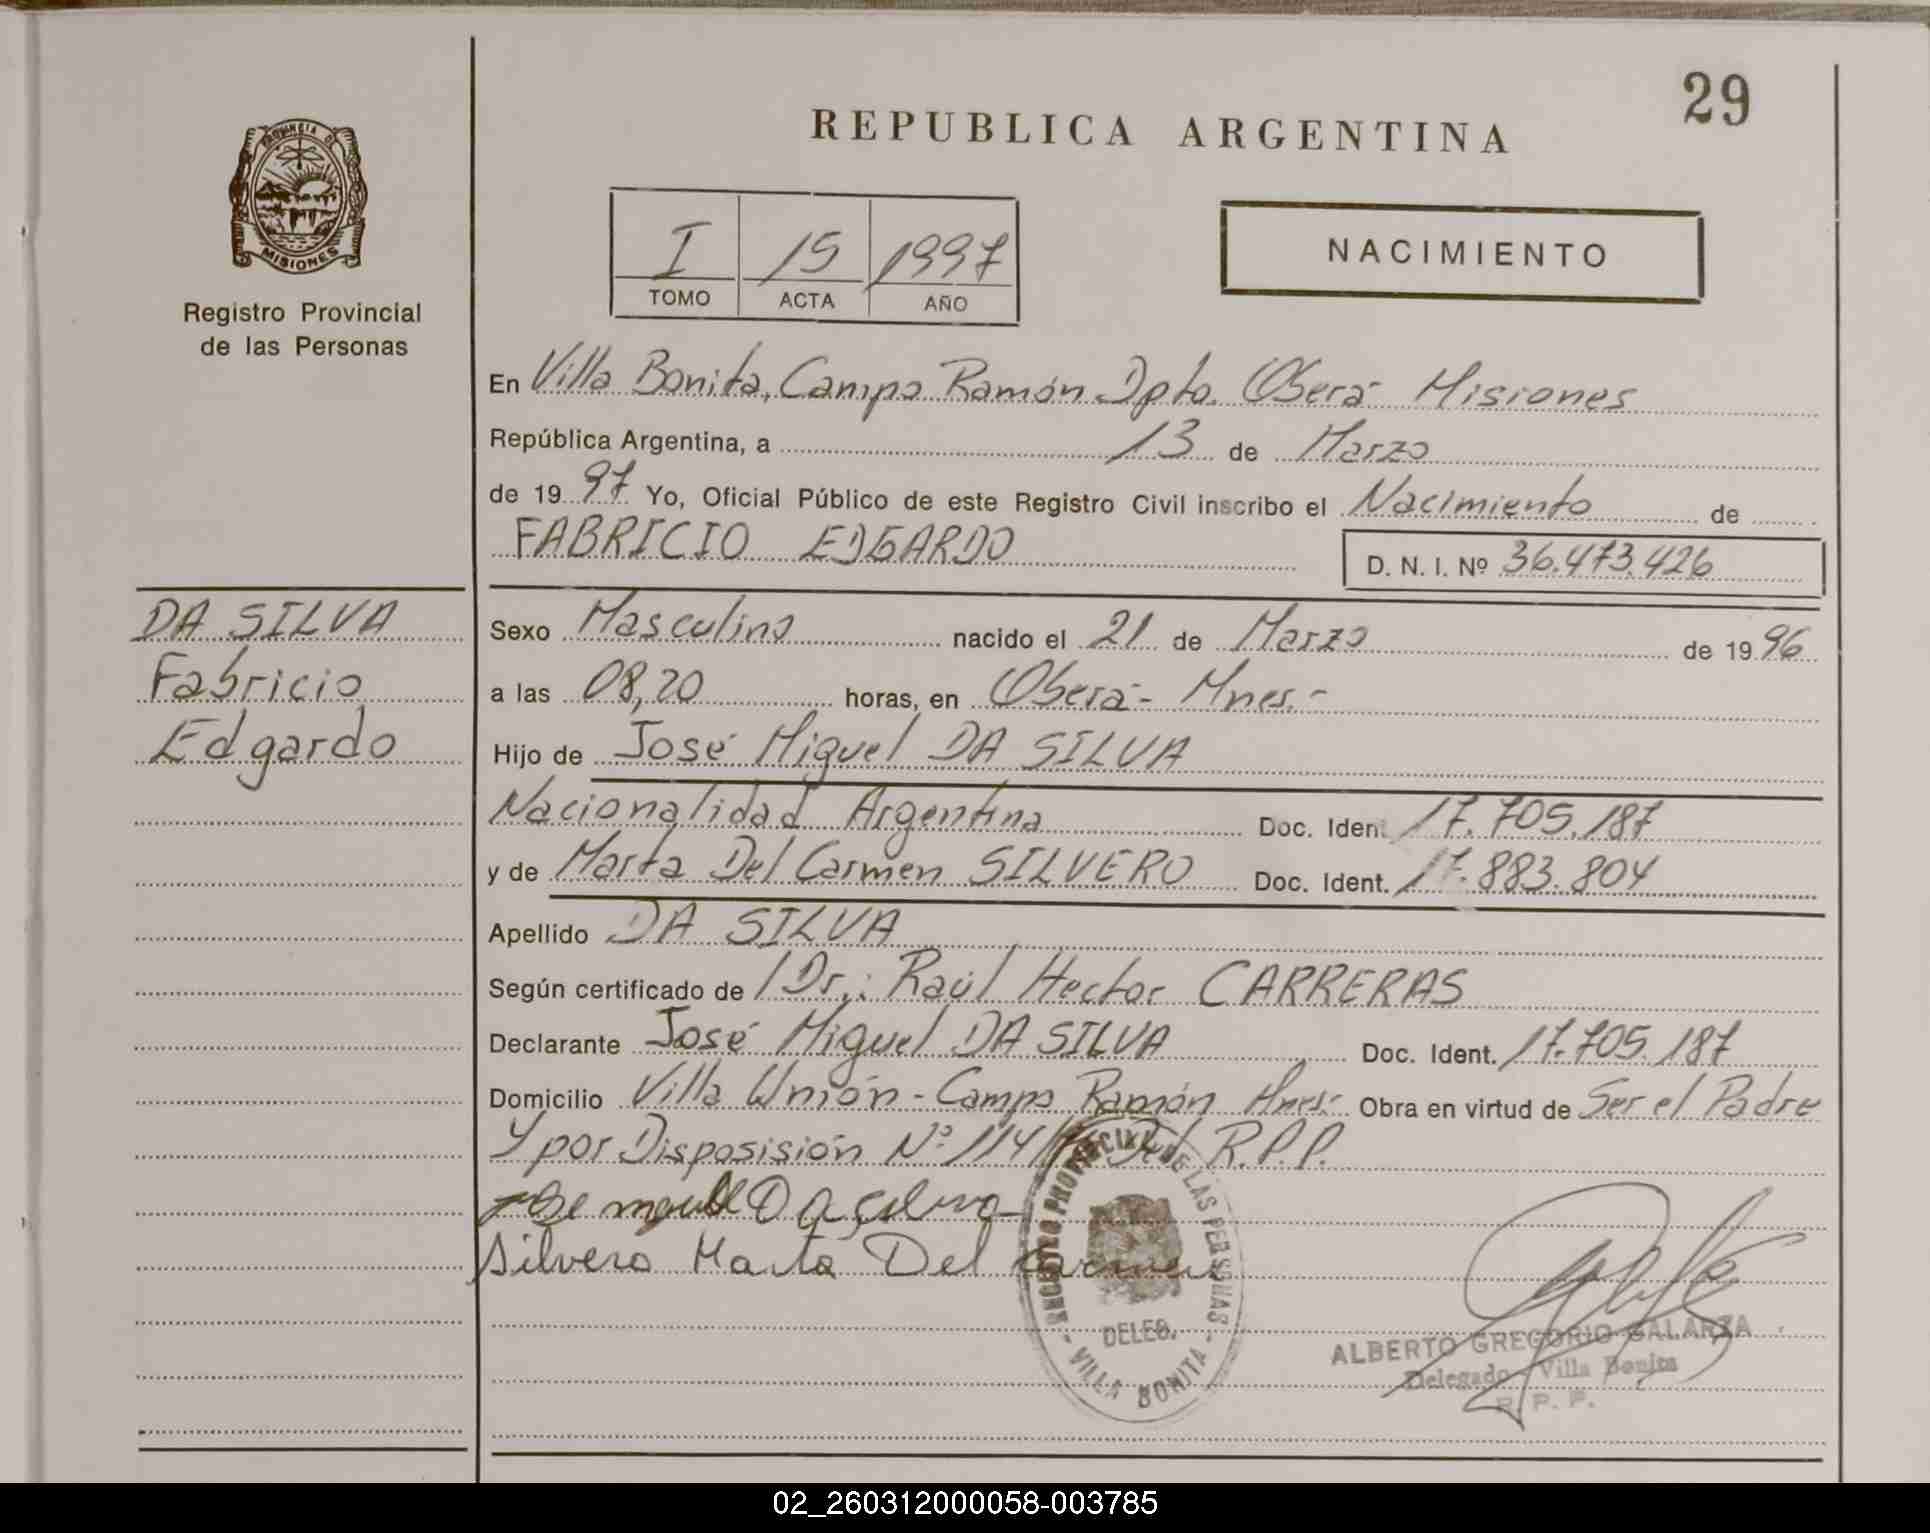 29
REPUBLICA ARGENTINA
PROVINCIA DE
MISIONES
Registro Provincial
de las Personas
I 15 1997
TOMO ACTA AÑO
NACIMIENTO
En Villa Bonita, Campo Ramón Dpto. Oberá- Misiones
República Argentina, a 13 de Marzo
de 1997 Yo, Oficial Público de este Registro Civil inscribo el Nacimiento de
FABRICIO EDGARDO
D. N. I. Nº 36.473.426
DA SILVA
Fabricio
Edgardo
Sexo Masculino nacido el 21 de Marzo de 1996
a las 08,20 horas, en Oberá- Mnes.-
Hijo de José Miguel DA SILVA
Nacionalidad Argentina Doc. Ident. 17.705.187
y de Marta Del Carmen SILVERO Doc. Ident. 17.883.804
Apellido DA SILVA
Según certificado de / Dr.: Raúl Hector CARRERAS
Declarante José Miguel DA SILVA Doc. Ident. 17.705.187
Domicilio Villa Unión - Campo Ramón Mnes.- Obra en virtud de Ser el Padre
Y por Disposisión Nº 114/ Del R.P.P.
Da silva
Silvero Marta Del Carmen
REGISTRO PROVINCIAL DE LAS PERSONAS
DELEG.
- VILLA BONITA -
ALBERTO GREGORIO GALARZA
Delegado Villa Bonita
R. P. P.
02_260312000058-003785